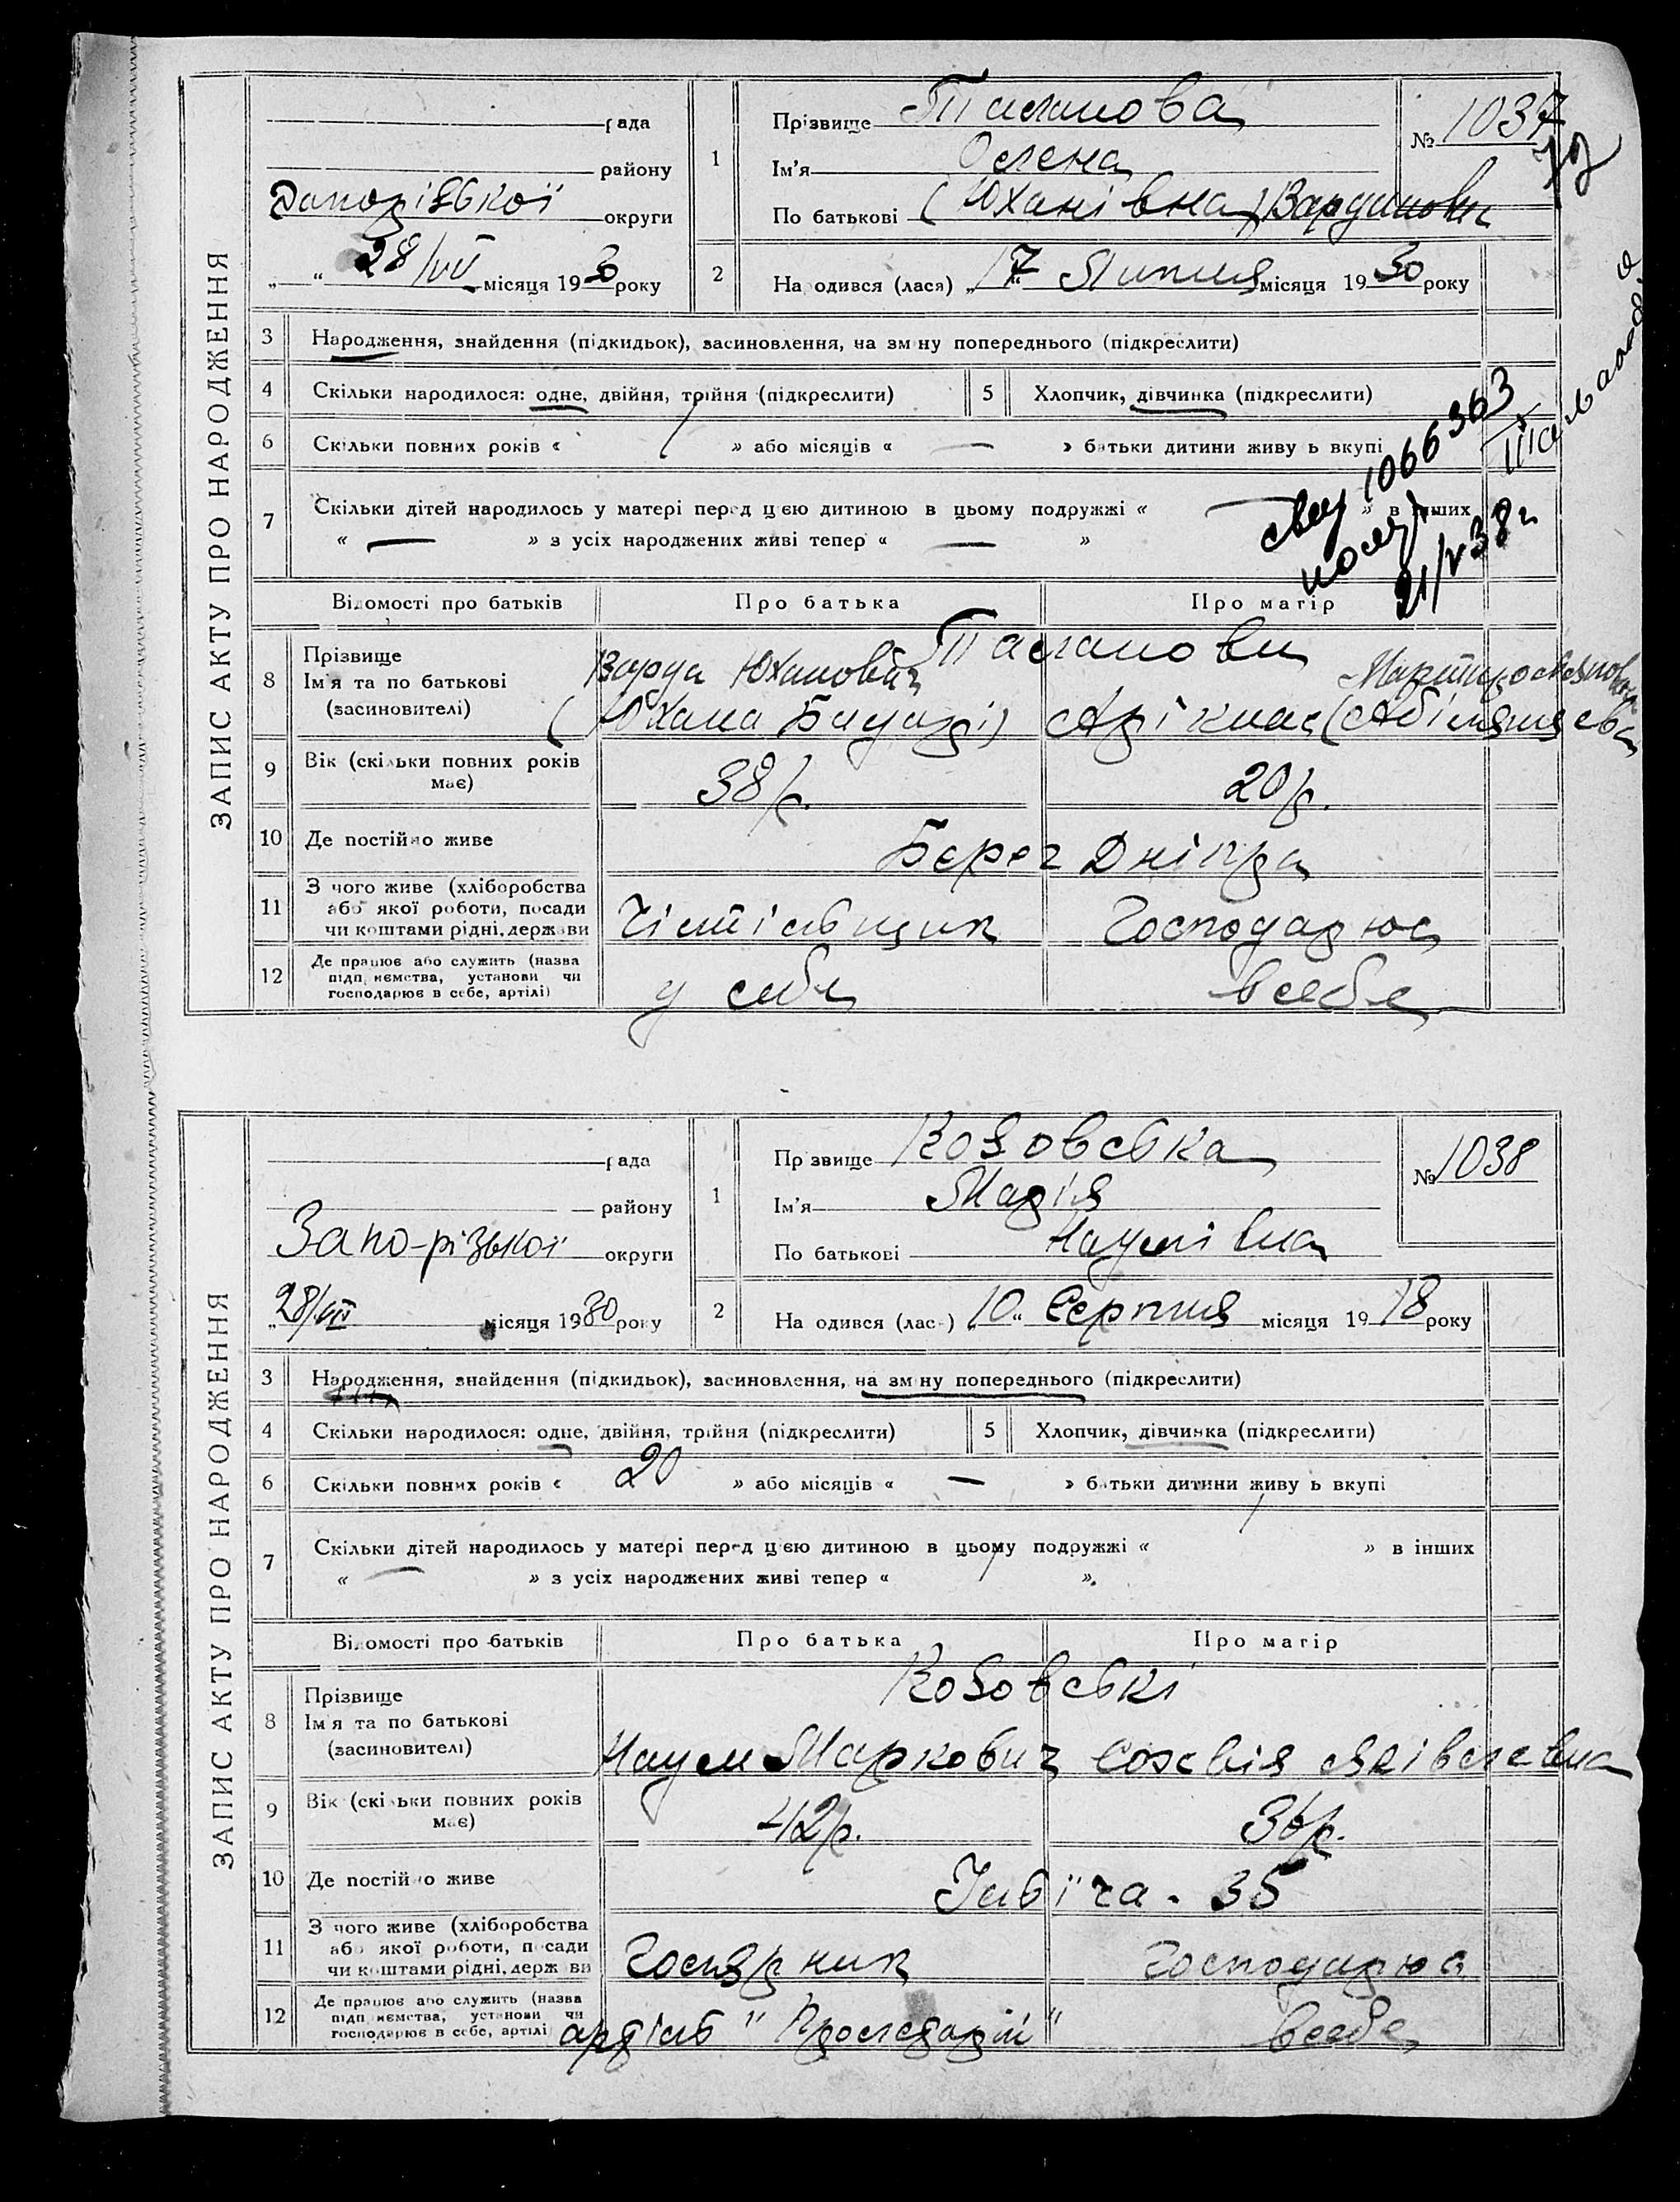 ЗАПИС АКТУ ПРО НАРОДЖЕННЯ
рада
району
Запорізької округи
„ “ 28/VII місяця 1930 року
1
Прізвище Тамамова
Ім'я Олена
По батькові (Юханівна) Вардиновн
№ 1037
2
На одився (лася) „17“ Липня місяця 1930 року
3 Народження, знайдення (підкидьок), засиновлення, на зм ну попереднього (підкреслити)
4 Скільки народилося: одне, двійня, трійня (підкреслити)
5 Хлопчик, дівчинка (підкреслити)
6 Скільки повних років « 1 » або місяців « — » батьки дитини живу ь вкупі
7 Скільки дітей народилось у матері перед цією дитиною в цьому подружжі « — » в інших
« — » з усіх народжених живі тепер « — »
1066363
21/V 38 г
Відомості про батьків
Про батька
Про матір
8 Прізвище
Ім'я та по батькові
(засиновителі)
Варда Юханович
(Юхана
9 Вік (скільки повних років має)
38 р.
20 р.
10 Де постійно живе
Берег Дніпра
11 З чого живе (хліборобства або якої роботи, посади чи коштами рідні, держави
Чистільщик
Господарює
12 Де працює або служить (назва підприємства, установи чи господарює в себе, артілі)
у себе
в себе
ЗАПИС АКТУ ПРО НАРОДЖЕННЯ
рада
району
Запо-різької округи
„28/VII місяця 1930 року
1
Пр звище Козовська
Ім'я Марія
По батькові Наумівна
№ 1038
2
На одився (лас-) „10“ Серпня місяця 1918 року
3 Народження, знайдення (підкидьок), засиновлення, на зм ну попереднього (підкреслити)
4 Скільки народилося: одне, двійня, трійня (підкреслити)
5 Хлопчик, дівчинка (підкреслити)
6 Скільки повних років « 20 » або місяців « — » батьки дитини живу ь вкупі
7 Скільки дітей народилось у матері перед цією дитиною в цьому подружжі « » в інших
« — » з усіх народжених живі тепер « »
Відомості про батьків
Про батька
Про матір
8 Прізвище
Ім'я та по батькові
(засиновителі)
Козовські
Наум Маркович
Софвія Яківлевна
9 Вік (скільки повних років має)
42 р.
36 р.
10 Де постійно живе
35
11 З чого живе (хліборобства або якої роботи, посади чи коштами рідні, держави
Господарює
12 Де працює або служить (назва підприємства, установи чи господарює в себе, артілі
артіль
в себе